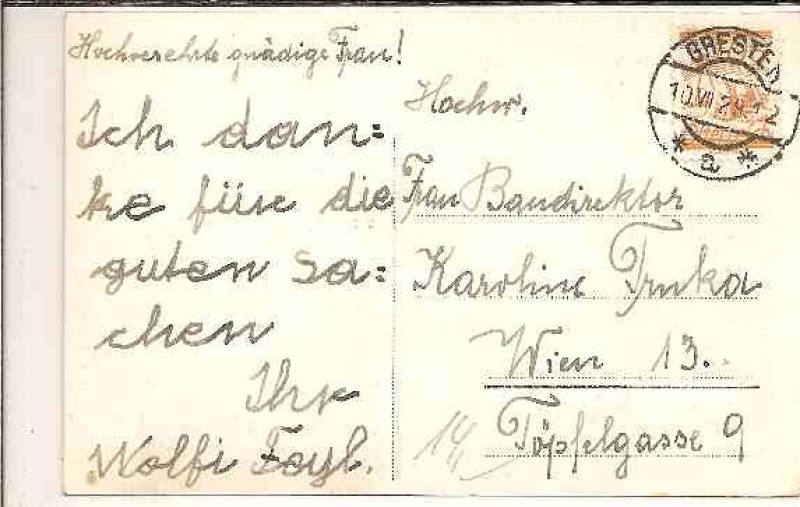 Hochverehrte gnädige Frau!
Ich dan=
ke für die
guten Sa=
chen
Ihr
Wolfi Feyl.
GRESTEN
10.VII.29.12
* a *
Hochw.
Frau Baudirektor
Karoline Trnka
Wien 13.
Töpfelgasse 9